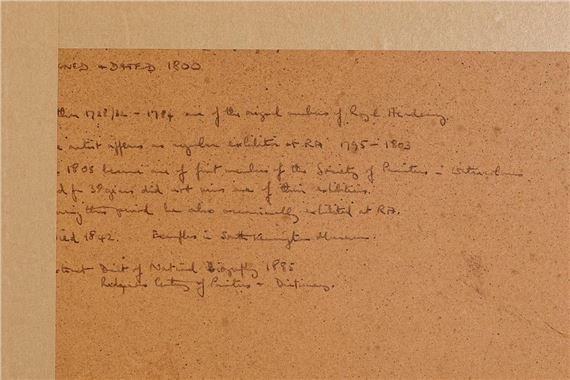 GNED & DATED 1800
1728/ - 1784 one of the original members of Royal Academy.
artist appears as regular exhibitor at RA 1795 - 1803
1805 became one of first members of the Society of Painters in Watercolours
d for 38 years did not miss one of their exhibitions.
uring this period he also occasionally exhibited at RA.
ied 1842. Examples in South Kensington Museum.
Dict of National Biography 1885
Redgraves Century of Painters & Dictionary.